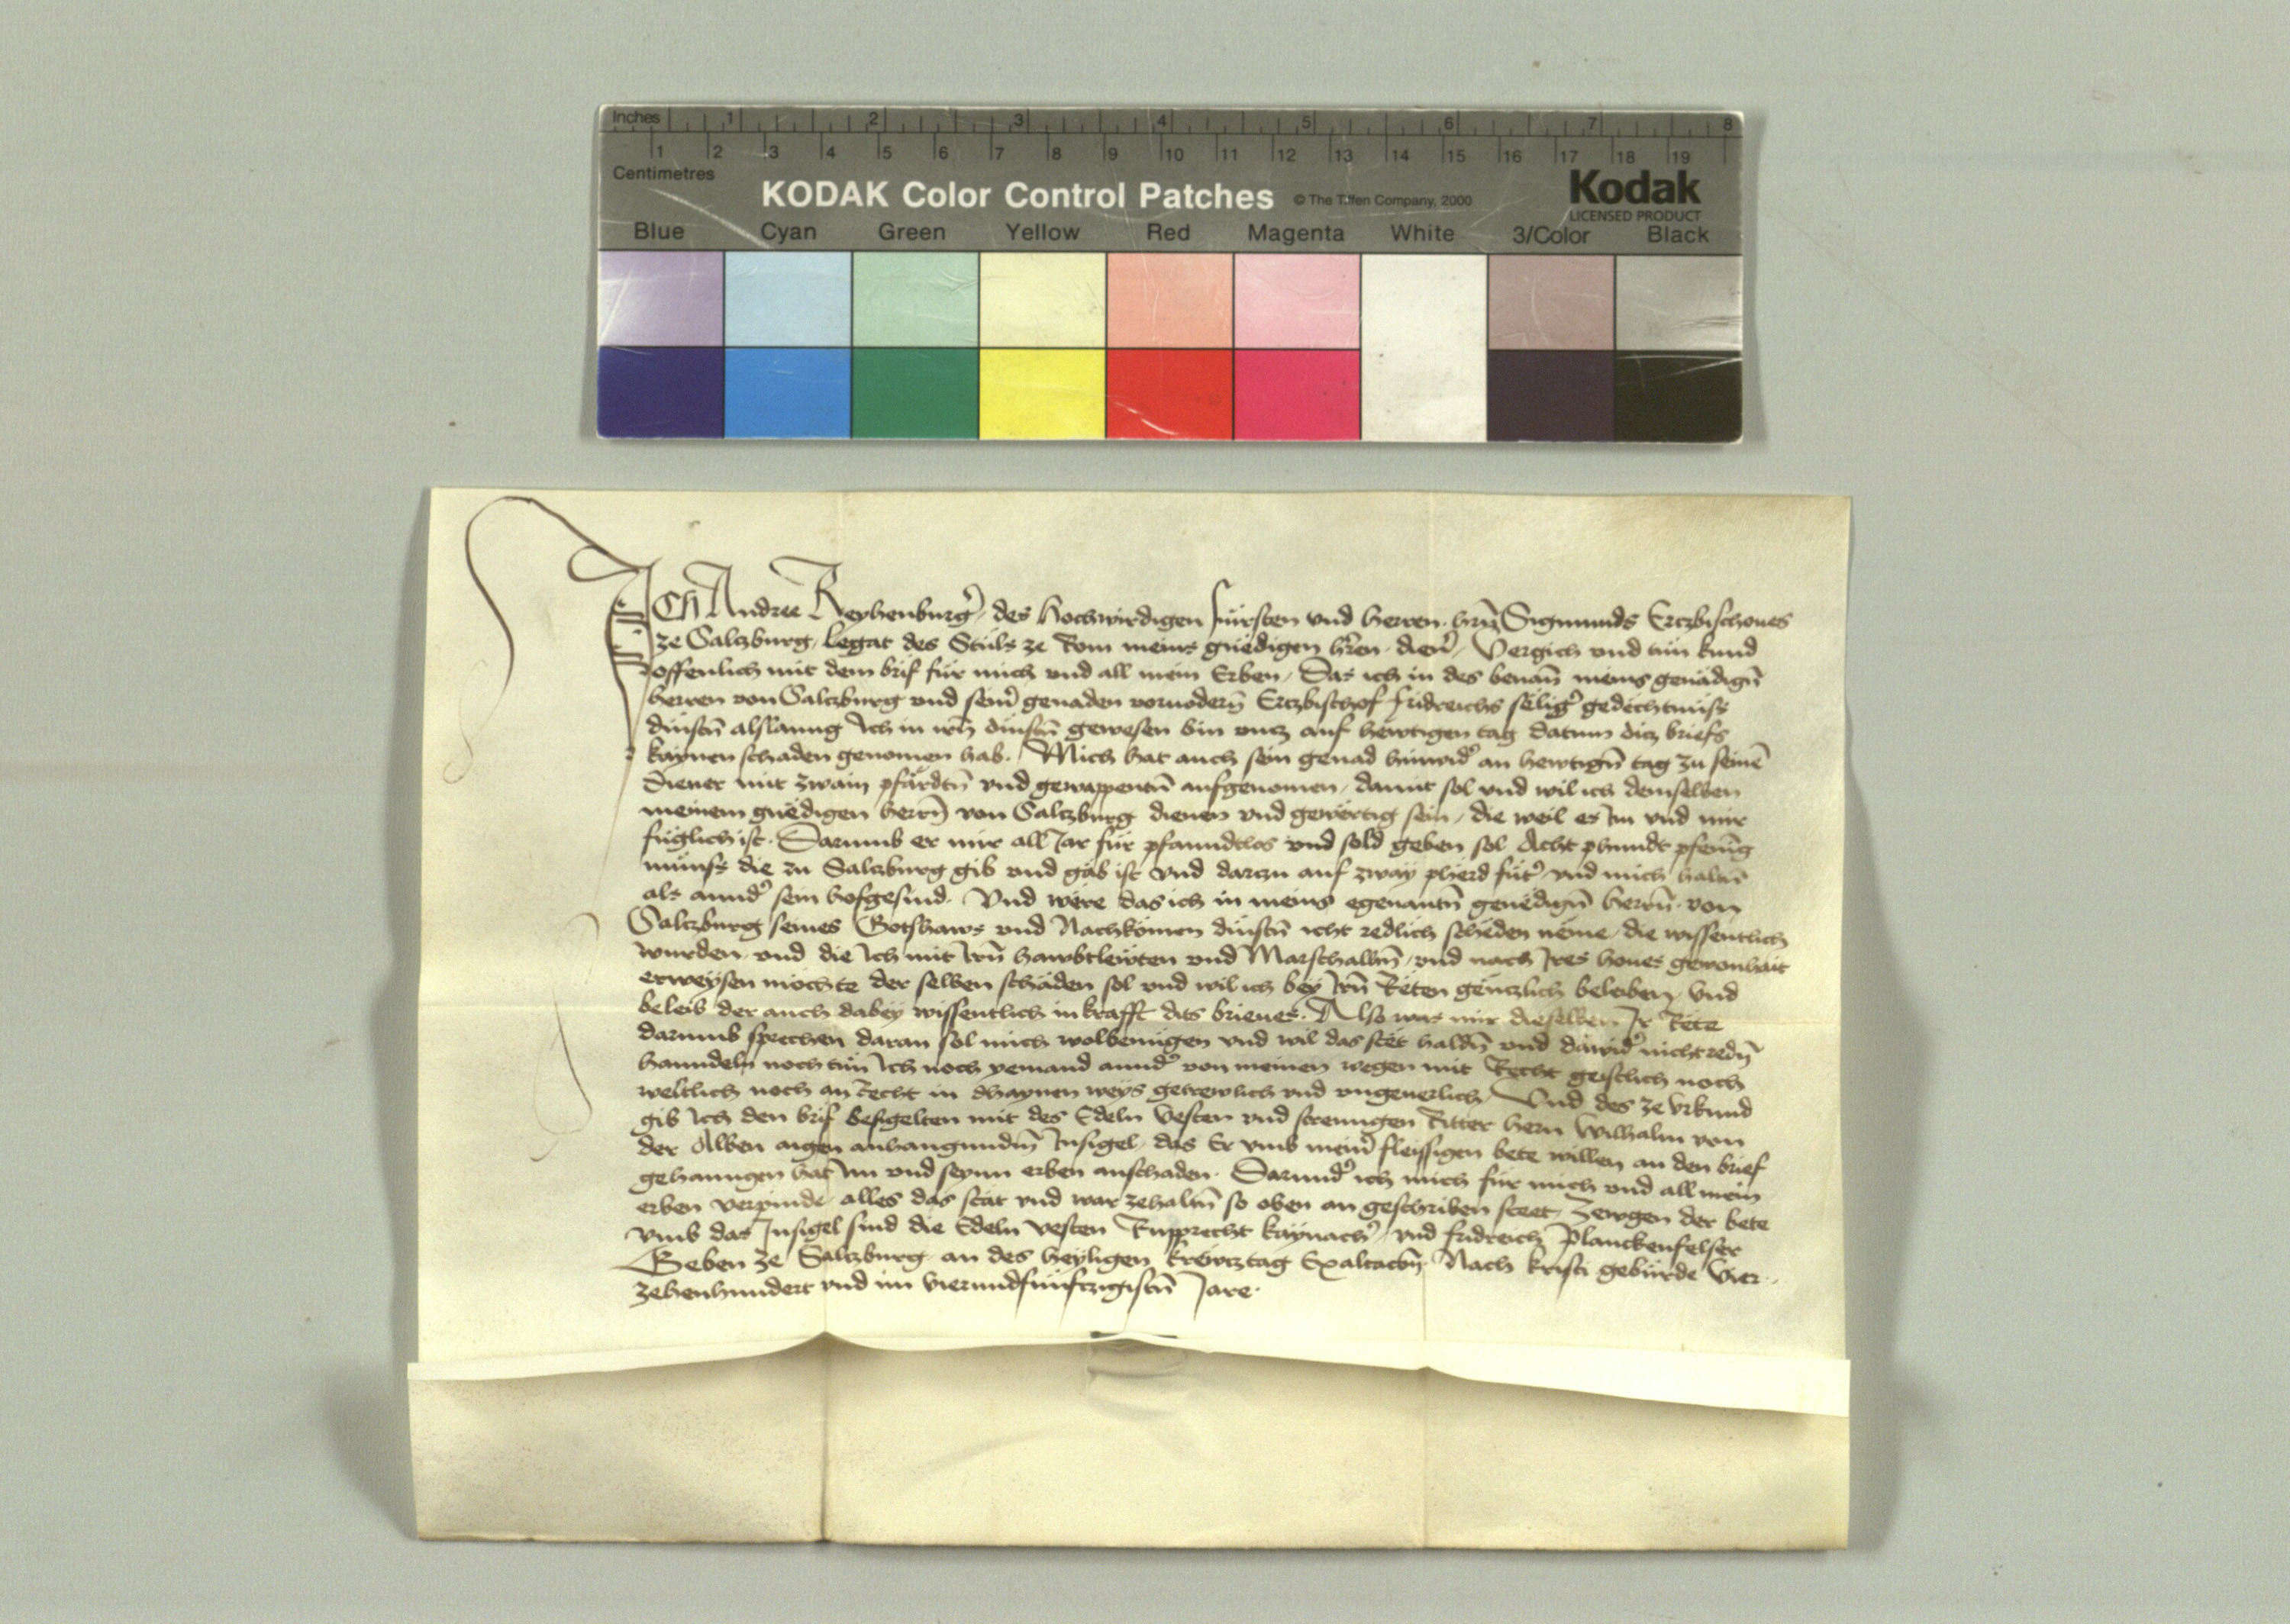 Inches 1 2 3 4 5 6 7 8
1 2 3 4 5 6 7 8 9 10 11 12 13 14 15 16 17 18 19
Centimetres
KODAK Color Control Patches © The Tiffen Company, 2000 Kodak
LICENSED PRODUCT
Blue Cyan Green Yellow Red Magenta White 3/Color Black
ICH Andree Reyhenburg̉ des Hochwirdigen fürsten vnd herren hrn̄ Sigmunds Ertzbischoues
ze Salczburg, legat des Stuls ze Rom meins gnëdigen hr̄en dien̉, Vergich vnd tun kund
offenlich mit dem brif für mich vnd all mein Erben, Das ich in des benan̄ meins genädign̄
herren von Salczburg vnd sein̉ genaden voruodern̄ Ertzbischof fridreichs sëlig̉ gedëchtnüss
dinstn̄ alslanng Ich in irn̄ dinstn̄ gewesen bin vncz auf hewtigen tag datum dicz briefs
kaynen schaden genomen hab. Mich hat auch sein genad hinwid̉ an hewtign̄ tag zu seinē
diener mit zwain pfärdtn̄ vnd gewappentn̄ aufgenomen, damit sol vnd wil ich demselben
meinem gnëdigen herrn̄ von Salczburg dienen vnd gewërtig sein, die weil es Im vnd mir
füglich ist. Darumb er mir all Jar für pfanndtlos vnd sold geben sol Acht phundt pfenīg
münss die zu Salczburg gib vnd gäb ist vnd darczu auf zway pherd fut̉ vnd mich haltn̄
als annd̉ sein hofgesind. Vnd wëre das ich in meins egenantn̄ genëdign̄ herrn̄ von
Salczburg seines Gotshaws vnd Nachkömen dinstn̄ icht redlich schëden nëme, die wissentlich
wurden, vnd die Ich mit Irn̄ hawbtlewten vnd Marschalhn̄, vnd nach Ires houes gewonhait
erweysen möchte der selben schäden sol vnd wil ich bey Irn̄ Rëten gënczlich beleiben, Vnd
beleib der auch dabey wissentlich in krafft dits brieues. Also was mir dieselben Ir Rëte
darumb sprechen daran sol mich wolbenügen vnd wil das stët haldn̄ vnd dawid̉ nicht redn̄
hanndeln noch tun Ich noch yemand annd̉ von meinen wegen mit Recht geistlich noch
weltlich noch an Recht in dhaynen weys getrewlich vnd vngeuerlich Vnd des ze Vrkund
gib Ich den brif besigelten mit des Edeln Vesten vnd strenngen Ritter hern Wilhalm von
der Alben aigen anhangundm̄ Insigel, das Er vmb mein̉ fleissigen bete willen an den brief
gehanngen hat Im vnd seynn erben anschaden. Darund̉ ich mich für mich vnd all mein
erben verpinde alles das stät vnd war zehaltn̄ so oben an geschriben steet, Zewgen der bete
vmb das Insigel sind die Edeln vesten Rupprecht kaynach̉, vnd fridreich Planckenfelser
Geben ze Salczburg an des heyligen krewcztag Exaltacōn̄ Nach kristi gebürde Vier
zehenhundert vnd im vierundfünftzigistn̄ Jare.